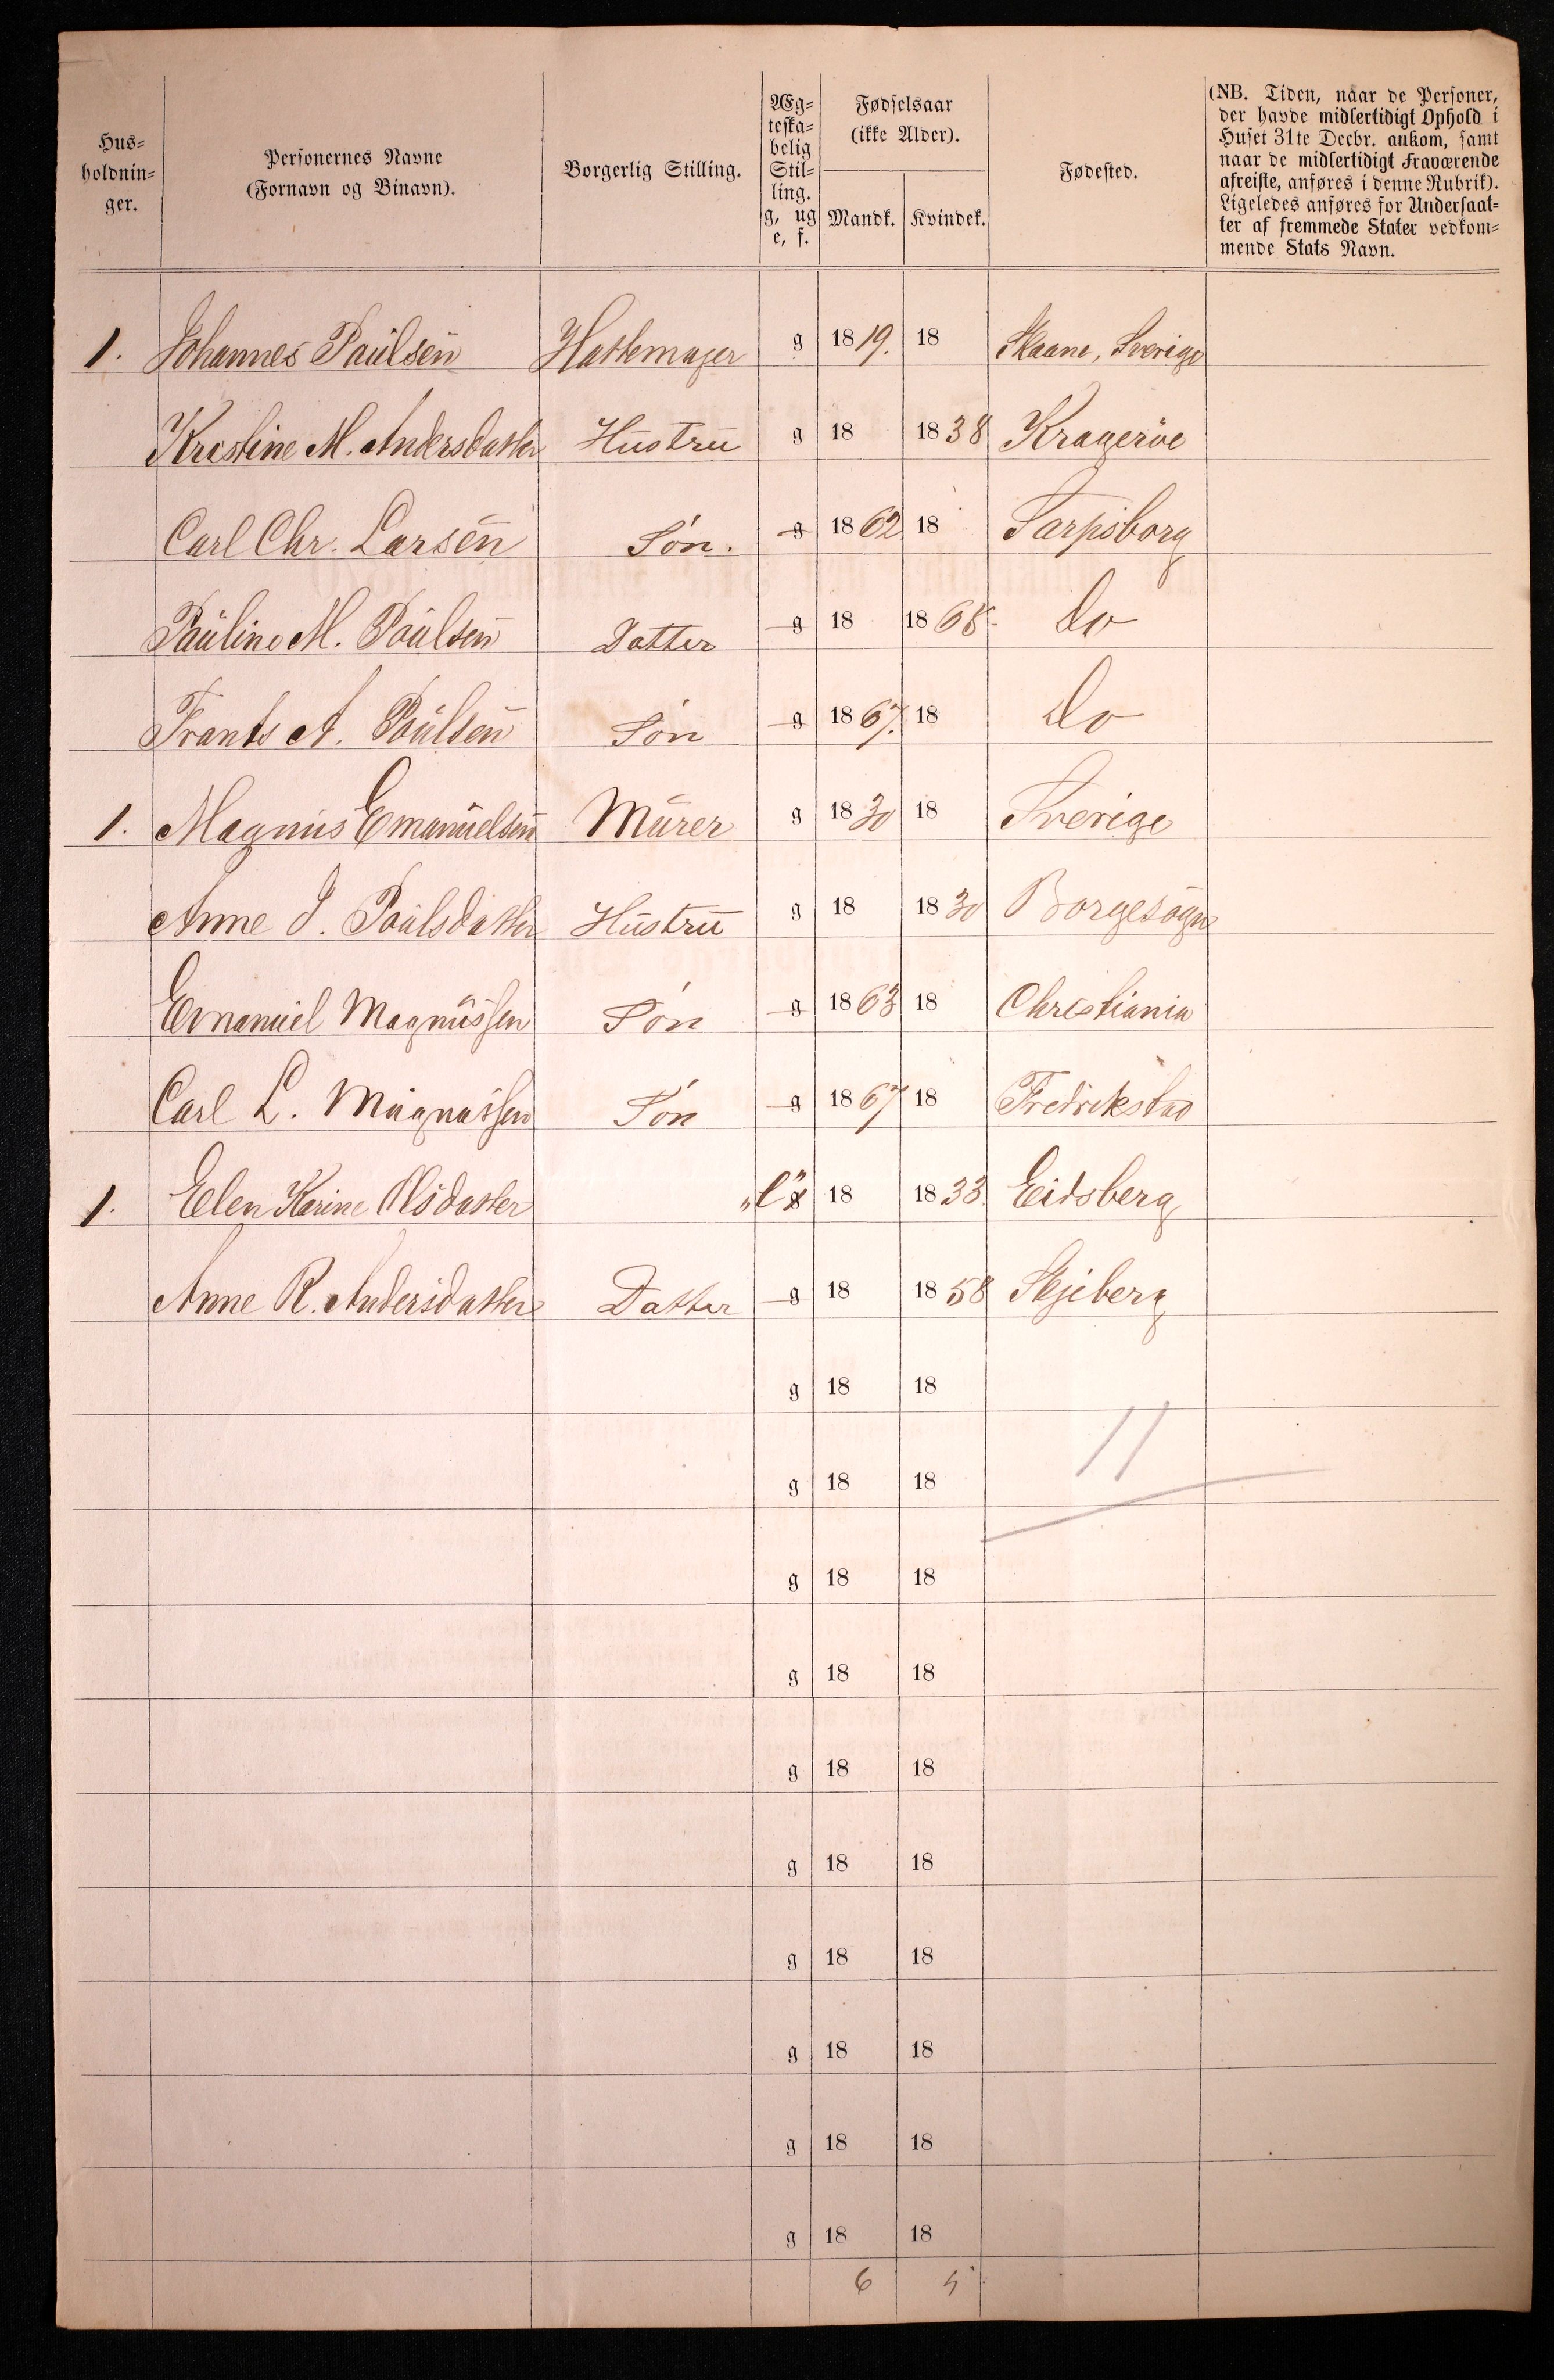 Hus=
holdnin=
ger.
Personernes Navne
(Fornavn og Binavn).
Borgerlig Stilling.
Æg=
teska=
belig
Stil=
ling.
g, ug
e, f.
Fødselsaar
(ikke Alder).
Mandk. Kvindek.
Fødested.
(NB. Tiden, naar de Personer,
der havde midlertidigt Ophold i
Huset 31te Decbr. ankom, samt
naar de midlertidigt Fraværende
afreiste, anføres i denne Rubrik).
Ligeledes anføres for Undersaat=
ter af fremmede Stater vedkom=
mende Stats Navn.
1. Johannes Paulsen Hattemager g 1819. 18 Skaane, Sverige
Kristine M. Andersdatter Hustru g 18 1838 Krageröe
Carl Chr. Larsen Sön. g 1862 18 Sarpsborg
Pauline M. Poulsen Datter g 18 1868 do
Frants A. Poulsen Sön g 1867. 18 do
1. Magnus Emanuelsen Murer g 1830 18 Sverige
Anne J. Poulsdatter Hustru g 18 1830 Borgesogn
Emanuel Magnussen Sön g 1863 18 Christiania
Carl L. Magnussen Sön g 1867 18 Fredrikstad
1. Elen Karine Olsdatter "e" g 18 1833. Eidsberg
Anne R. Andersdatter Datter g 18 1858 Skjeberg
g 18 18
11
g 18 18
g 18 18
g 18 18
g 18 18
g 18 18
g 18 18
g 18 18
g 18 18
g 18 18
6 5